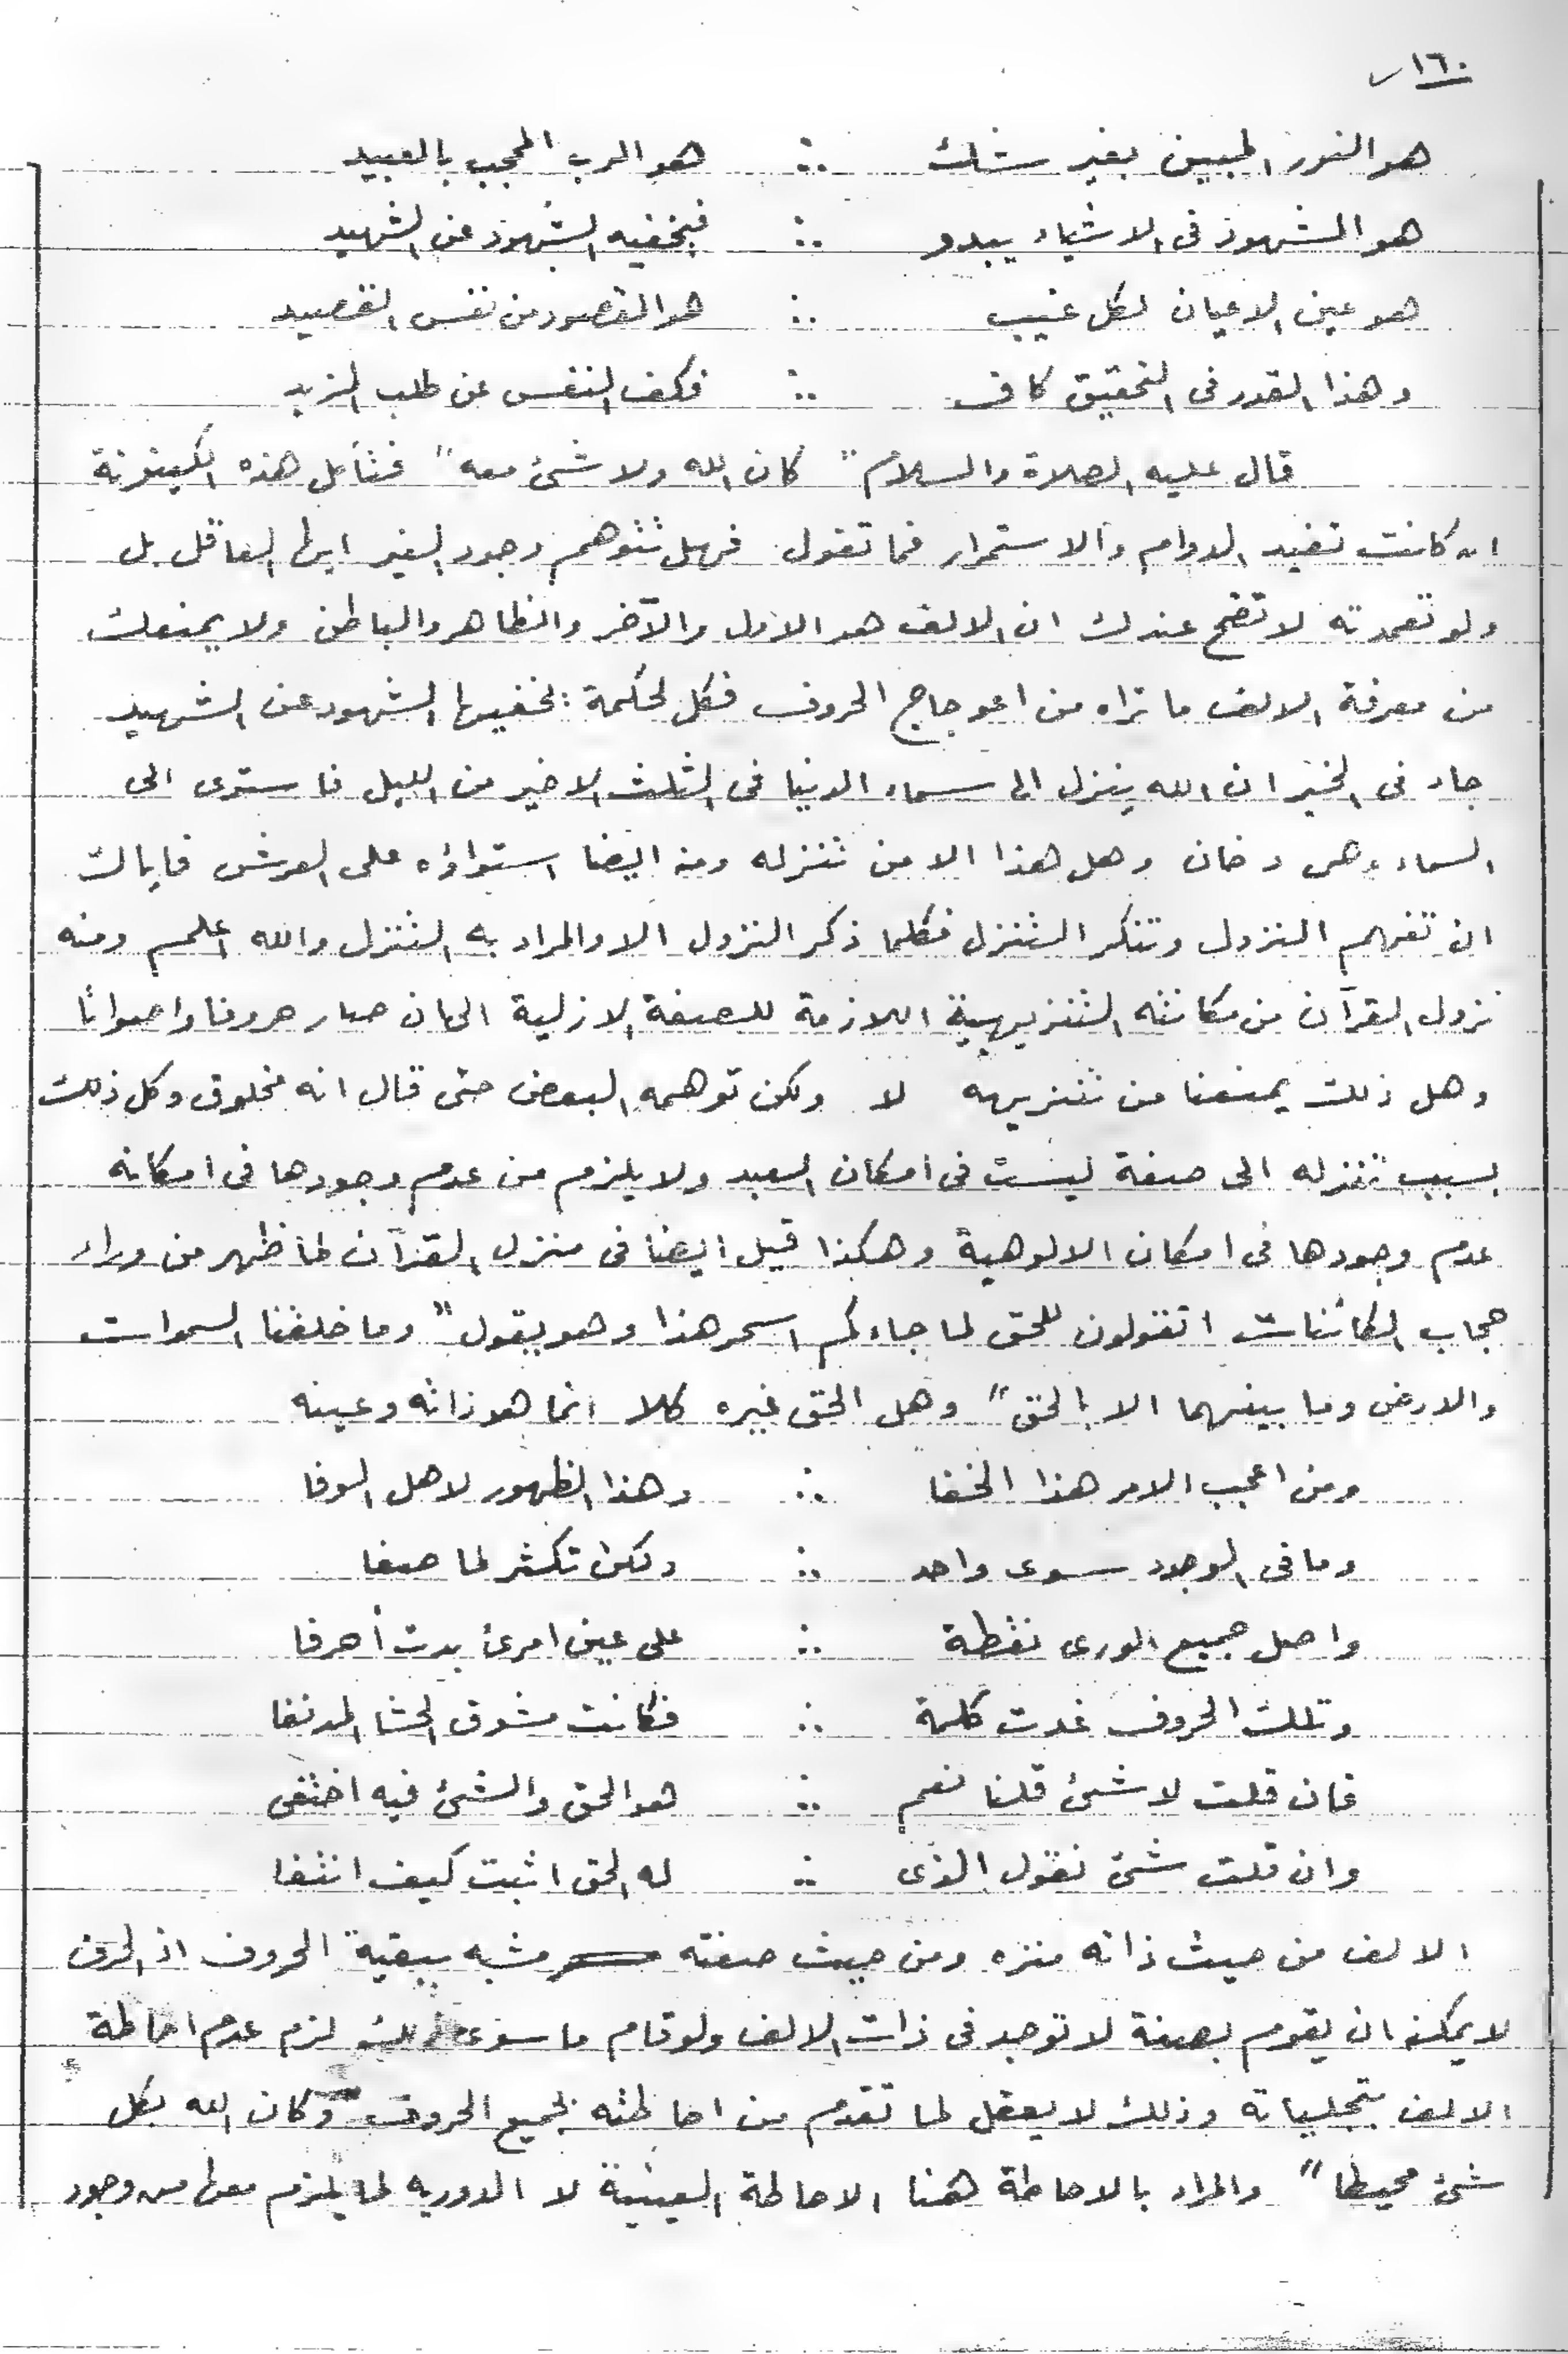 ١٦٠
هو النور المبين بغير شك ∴ هو الرب المحجب بالعبيد
هو المشهود فى الاشياء يبدو ∴ فيخفيه الشهود عن الشهيد
هو عين الاعيان لكل غيب ∴ هو المقصود من نفس القصيد
وهذا القدر فى التحقيق كاف ∴ فكف النفس عن طلب المزيد
قال عليه الصلاة والسلام " كان الله ولا شئ معه " فتأمل هذه الكينونة
ان كانت تفيد الدوام والاستمرار فما تقول فهل تتوهم وجود الغير ايها العاقل بل
ولو تعمدته لاتضح عندك ان الالف هو الاول والآخر والظاهر والباطن ولا يمنعك
من معرفة الالف ما تراه من اعوجاج الحروف فكل لحكمة : يخفيها الشهود عن الشهيد
جاء فى الخبر ان الله ينزل الى سماء الدنيا فى الثلث الاخير من الليل فاستوى الى
السماء وهى دخان وهل هذا الا من تنزله ومنه ايضا استواؤه على العرش فاياك
ان تفهم النزول وتنكر التنزل فكلما ذكر النزول الا والمراد به التنزل والله اعلم ومنه
نزول القرآن من مكانته التنزيهية اللازمة للصفة الازلية الى ان صار حروفا واصواتا
وهل ذلك يمنعنا من تنزيهه لا ولكن توهمه البعض حتى قال انه مخلوق وكل ذلك
بسبب تنزله الى صفة ليست فى امكان العبد ولا يلزم من عدم وجودها فى امكانه
عدم وجودها فى امكان الالوهية وهكذا قيل ايضا فى منزل القرآن لما ظهر من وراء
حجاب الكائنات اتقولون للحق لما جاءكم اسحر هذا وهو يقول " وما خلقنا السموات
والارض وما بينهما الا بالحق " وهل الحق غيره كلا انما هو ذاته وعينه
ومن اعجب الامر هذا الخفا ∴ وهذا الظهور لاهل الوفا
وما فى الوجود سوى واحد ∴ ولكن تكثر لما صفا
واصل جميع الورى نقطة ∴ على عين امرئ بدت أحرفا
وتلك الحروف غدت كلمة ∴ فكانت مشوق الحشا المدنفا
فان قلت لا شئ قلنا نعم ∴ هو الحق والشئ فيه اختفى
وان قلت شئ نقول الذى ∴ له الحق اثبت كيف انتفا
الالف من حيث ذاته منزه ومن حيث صفته مشبه ببقية الحروف اذ الحرف
لا يمكنه ان يقوم بصفة لا توجد فى ذات الالف ولو قام ما سوى لزم عدم احاطة
الالف بتجلياته وذلك لا يعقل لما تقدم من احاطته بجميع الحروف " وكان الله بكل
شئ محيطا " والمراد بالاحاطة هنا الاحاطة العينية لا الدورية لما يلزم معها من وجود